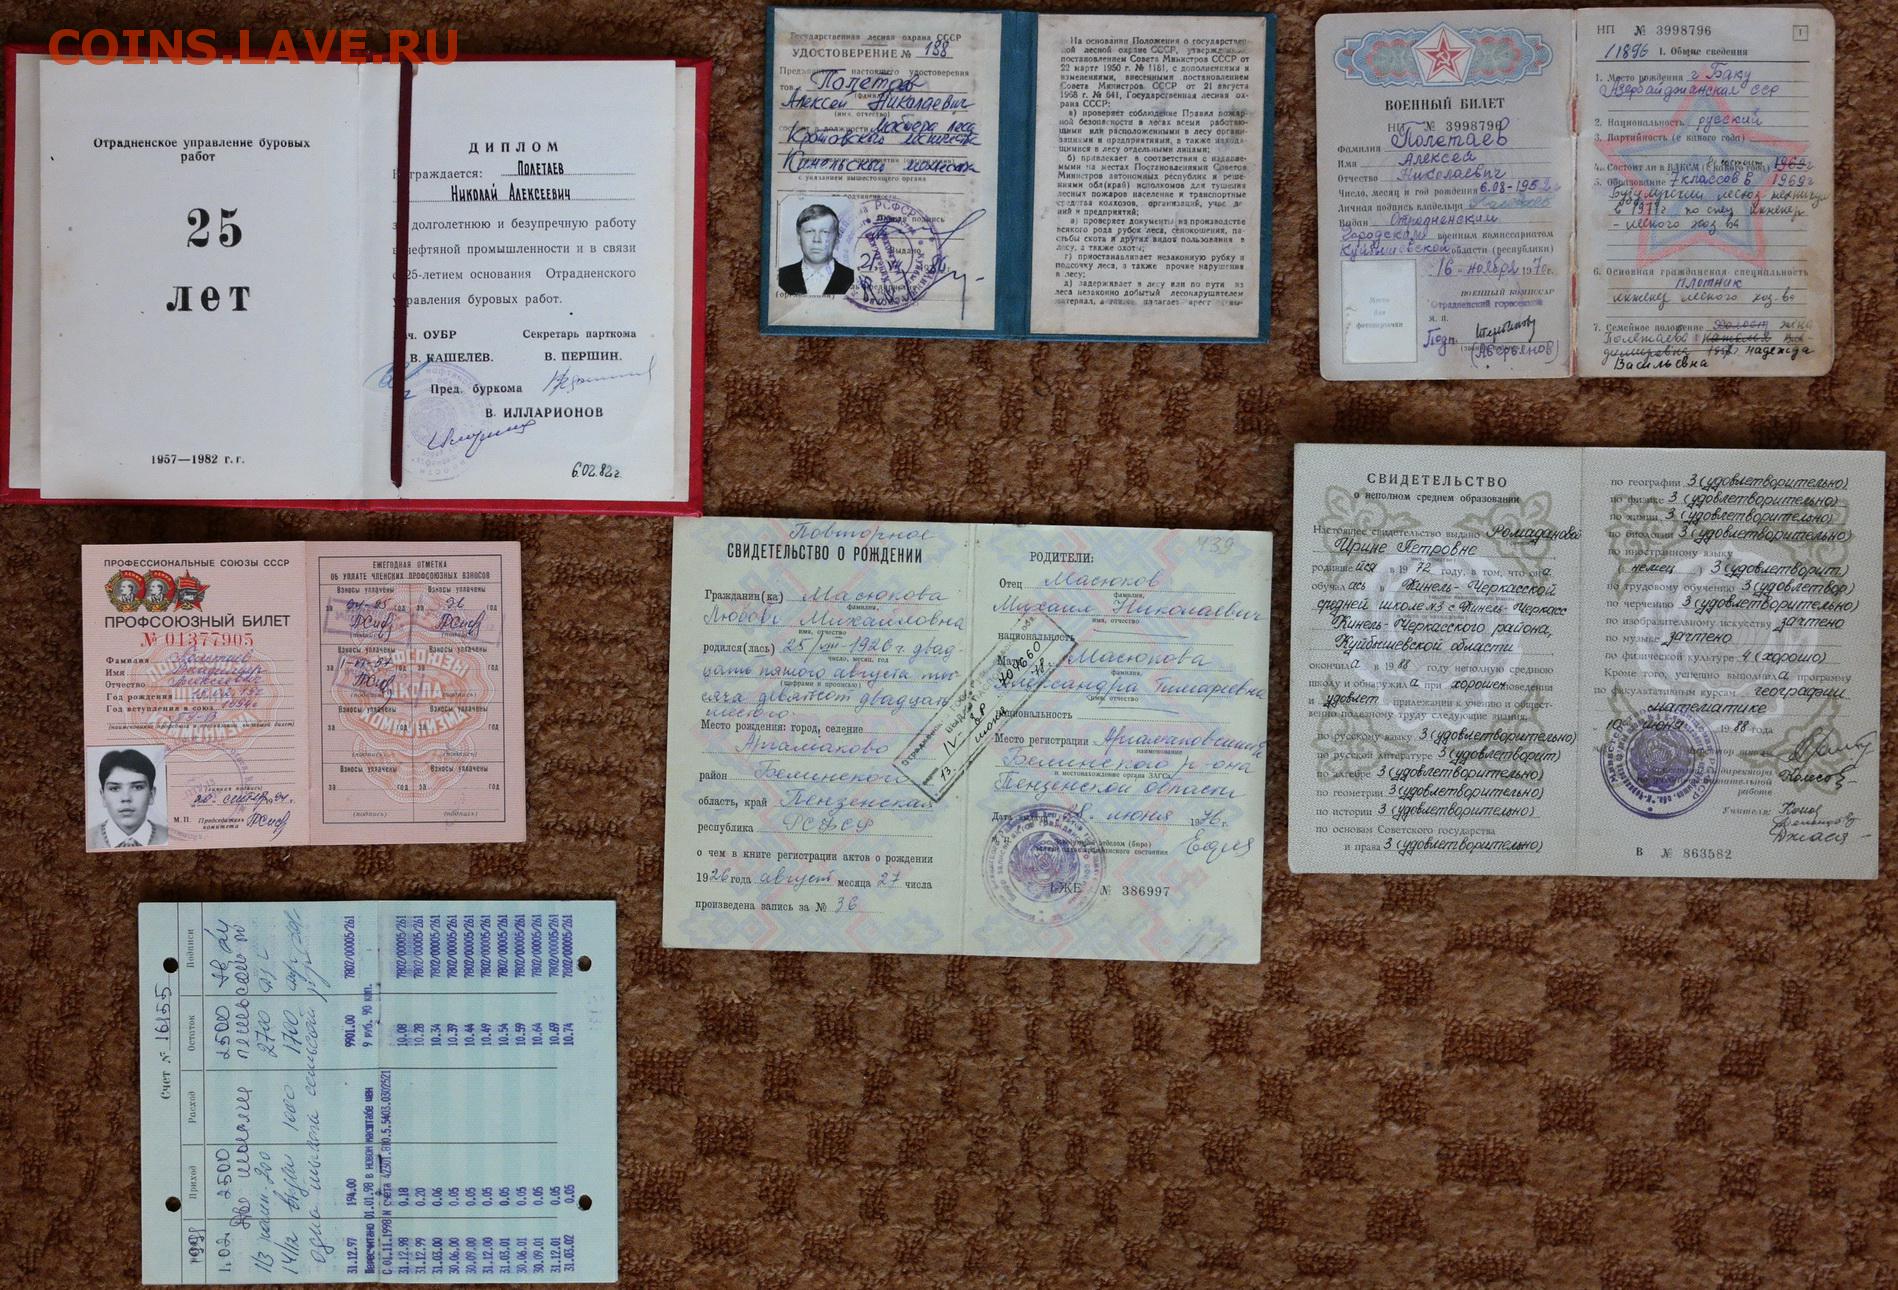 COINS.LAVE.RU
Отрадненское управление буровых
работ
25
лет
1957—1982 г. г.
ДИПЛОМ
Награждается: ПОЛЕТАЕВ
НИКОЛАЙ АЛЕКСЕЕВИЧ
за долголетнюю и безупречную работу
в нефтяной промышленности и в связи
с 25-летием основания Отрадненского
управления буровых работ.
Нач. ОУБР Секретарь парткома
В. КАШЕЛЕВ. В. ПЕРШИН.
Пред. буркома
В. ИЛЛАРИОНОВ
6.02.82г.
Государственная лесная охрана СССР
УДОСТОВЕРЕНИЕ № 188
Предъявитель настоящего удостоверения
тов. Полетаев
Алексей Николаевич
(имя, отчество)
состоит в должности мастера леса
Кротовского лесничества
Кинельского лесхоза
с указанием вышестоящего органа
На основании Положения о государствен-
ной лесной охране СССР, утвержденного
постановлением Совета Министров СССР от
22 марта 1950 г. № 1181, с дополнениями и
изменениями, внесенными постановлением
Совета Министров СССР от 21 августа
1968 г. № 641, Государственная лесная ох-
рана СССР:
а) проверяет соблюдение Правил пожар-
ной безопасности в лесах всеми работаю-
щими или расположенными в лесу органи-
зациями и предприятиями, а также находя-
щимися в лесу отдельными лицами;
б) привлекает в соответствии с издавае-
мыми на местах Постановлениями Советов
Министров автономных республик и реше-
ниями обл(край) исполкомов для тушения
лесных пожаров население и транспортные
средства колхозов, организаций, учреж де-
ний и предприятий;
в) проверяет документы на производство
всякого рода рубок леса, сенокошения, па-
стьбы скота и других видов пользования в
лесу, а также охоты;
г) приостанавливает незаконную рубку и
подсочку леса, а также прочие нарушения
в лесу;
д) задерживает в лесу или по пути из
леса незаконно добытый лесонарушителем
материал, а также
ВОЕННЫЙ БИЛЕТ
НП № 3998796
Фамилия Полетаев
Имя Алексей
Отчество Николаевич
Число, месяц и год рождения 6.08-1952г
Личная подпись владельца
Выдан Отрадненским
городским военным комиссариатом
Куйбышевской области (республики)
16 - ноября 1970г.
ВОЕННЫЙ КОМИССАР
Отрадненский горвоенком
Место
для
фотокарточки
М. П.
Подп.
(Аверьянов)
НП № 3998796
1
11896 I. Общие сведения
1. Место рождения г Баку
Азербайджанская ССР
2. Национальность русский
3. Партийность (с какого года)
4. Состоит ли в ВЛКСМ (с какого года) 1969г
5. Образование 7 классов в 1969г
в 1977г по спец инженер
лесного хоз ва
6. Основная гражданская специальность
Плотник
инженер лесного хоз-ва
7. Семейное положение Холост жена
Полетаева
надежда
Васильевна
ПРОФЕССИОНАЛЬНЫЕ СОЮЗЫ СССР
ПРОФСОЮЗНЫЙ БИЛЕТ
№ 01377905
Фамилия Полетаев
Имя Владимир
Отчество Алексеевич
Год рождения
Год вступления в союз 1984г
(личная подпись)
М.П. Председатель
комитета
ЕЖЕГОДНАЯ ОТМЕТКА
ОБ УПЛАТЕ ЧЛЕНСКИХ ПРОФСОЮЗНЫХ ВЗНОСОВ
Взносы уплачены Взносы уплачены
за год за год
(подпись) (подпись)
Взносы уплачены Взносы уплачены
за год за год
(подпись) (подпись)
за год за год
(подпись) (подпись)
Взносы уплачены Взносы уплачены
за год за год
(подпись) (подпись)
ПРОФСОЮЗЫ
ШКОЛА
КОММУНИЗМА
Повторное
СВИДЕТЕЛЬСТВО О РОЖДЕНИИ
Гражданин(ка) Масюкова
фамилия,
Любовь Михайловна
имя, отчество
родился(лась) 25/VIII-1926 г. двад-
число, месяц, год
цать пятого августа ты-
(цифрами и прописью)
сяча девятсот двадцать
шестого
Место рождения: город, селение
Аргамаково
район Беминского
область, край Пензенская
республика РСФСР
о чем в книге регистрации актов о рождении
1926 года август месяца 27 числа
произведена запись за № 36
439
РОДИТЕЛИ:
Отец Масюков
фамилия,
Михаил Николаевич
имя, отчество
национальность
Мать Масюкова
фамилия,
Александра Тимофеевна
имя, отчество
национальность
Место регистрации Аргамаковский
наименование
Беминского р-она
и местонахождение органа ЗАГСа
Пензенской области
Дата выдачи 28. июня 1976 г.
ІЖЕ № 386997
СВИДЕТЕЛЬСТВО
о неполном среднем образовании
Настоящее свидетельство выдано Ромадановой
Ирине Петровне
родившейся в 1972 году, в том, что она
обучалась в Кинель-Черкасской
средней школе №3 с Кинель-Черкасс
Кинель-Черкасского района,
Куйбышевской области
окончила в 1988 году неполную среднюю
школу и обнаружила при хорошем поведении
и удовлет прилежании к учению и общест-
венно полезному труду следующие знания,
по русскому языку 3(удовлетворительно)
по русской литературе 3(удовлетворит)
по алгебре 3(удовлетворительно)
по геометрии 3(удовлетворительно)
по истории 3(удовлетворительно)
по основам Советского государства
и права 3(удовлетворительно)
по географии 3(удовлетворительно)
по физике 3(удовлетворительно)
по химии 3(удовлетворительно)
по биологии 3(удовлетворительно)
по иностранному языку
(немец) 3(удовлетворит)
по трудовому обучению 3(удовлетвор)
по черчению 3(удовлетворительно)
по изобразительному искусству зачтено
по музыке зачтено
по физической культуре 4(хорошо)
Кроме того, успешно выполнила программу
по факультативным курсам географии
математике
10 июня 1988 года
Директор школы
директора
работе
Учителя:
В № 863582
Счет № 16155
Приход Расход Остаток Подписи
1998
1.02 2500 2500
Две тысячи пятьсот
200 2700
1000 1700
31.12.97 194.00 9901.00 7802/00005/261
Пересчитано 01.01.98 в новом масштабе цен 9 руб. 90 коп.
С 01.11.1998 N счета 42301.810.5.5403.0302521
31.12.98 0.18 10.08 7802/00005/261
31.12.99 0.20 10.28 7802/00005/261
31.03.00 0.06 10.34 7802/00005/261
30.06.00 0.05 10.39 7802/00005/261
30.09.00 0.05 10.44 7802/00005/261
31.12.00 0.05 10.49 7802/00005/261
31.03.01 0.05 10.54 7802/00005/261
30.06.01 0.05 10.59 7802/00005/261
30.09.01 0.05 10.64 7802/00005/261
31.12.01 0.05 10.69 7802/00005/261
31.03.02 0.05 10.74 7802/00005/261